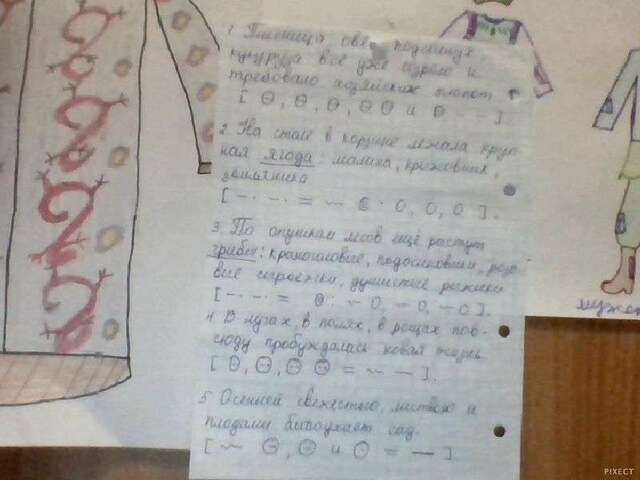 1 Пшеница овёс подсолнух,
кукуруза всё уже зрело и
требовало хозяйских хлопот
[ О, О, О, О О и О — — ].
2. На столе в корзине лежала круп-
ная ягода: малина, крыжовник,
земляника
[ —·—· = ~ О : О, О, О ].
3. По опушкам лесов ещё растут
грибы: краснолис, подосиновики, розо-
вые сыроежки, душистые рыжики
[ —·—· = О : ~ О, — О, — О ].
4. В лугах, в полях, в рощах пов-
сюду пробуждалась новая жизнь
[ О, О, О О = ~ — ].
5 Осенней свежестью, листвою и
плодами благоухает сад.
[ ~ О, О и О = — ]
мужск
PIXECT